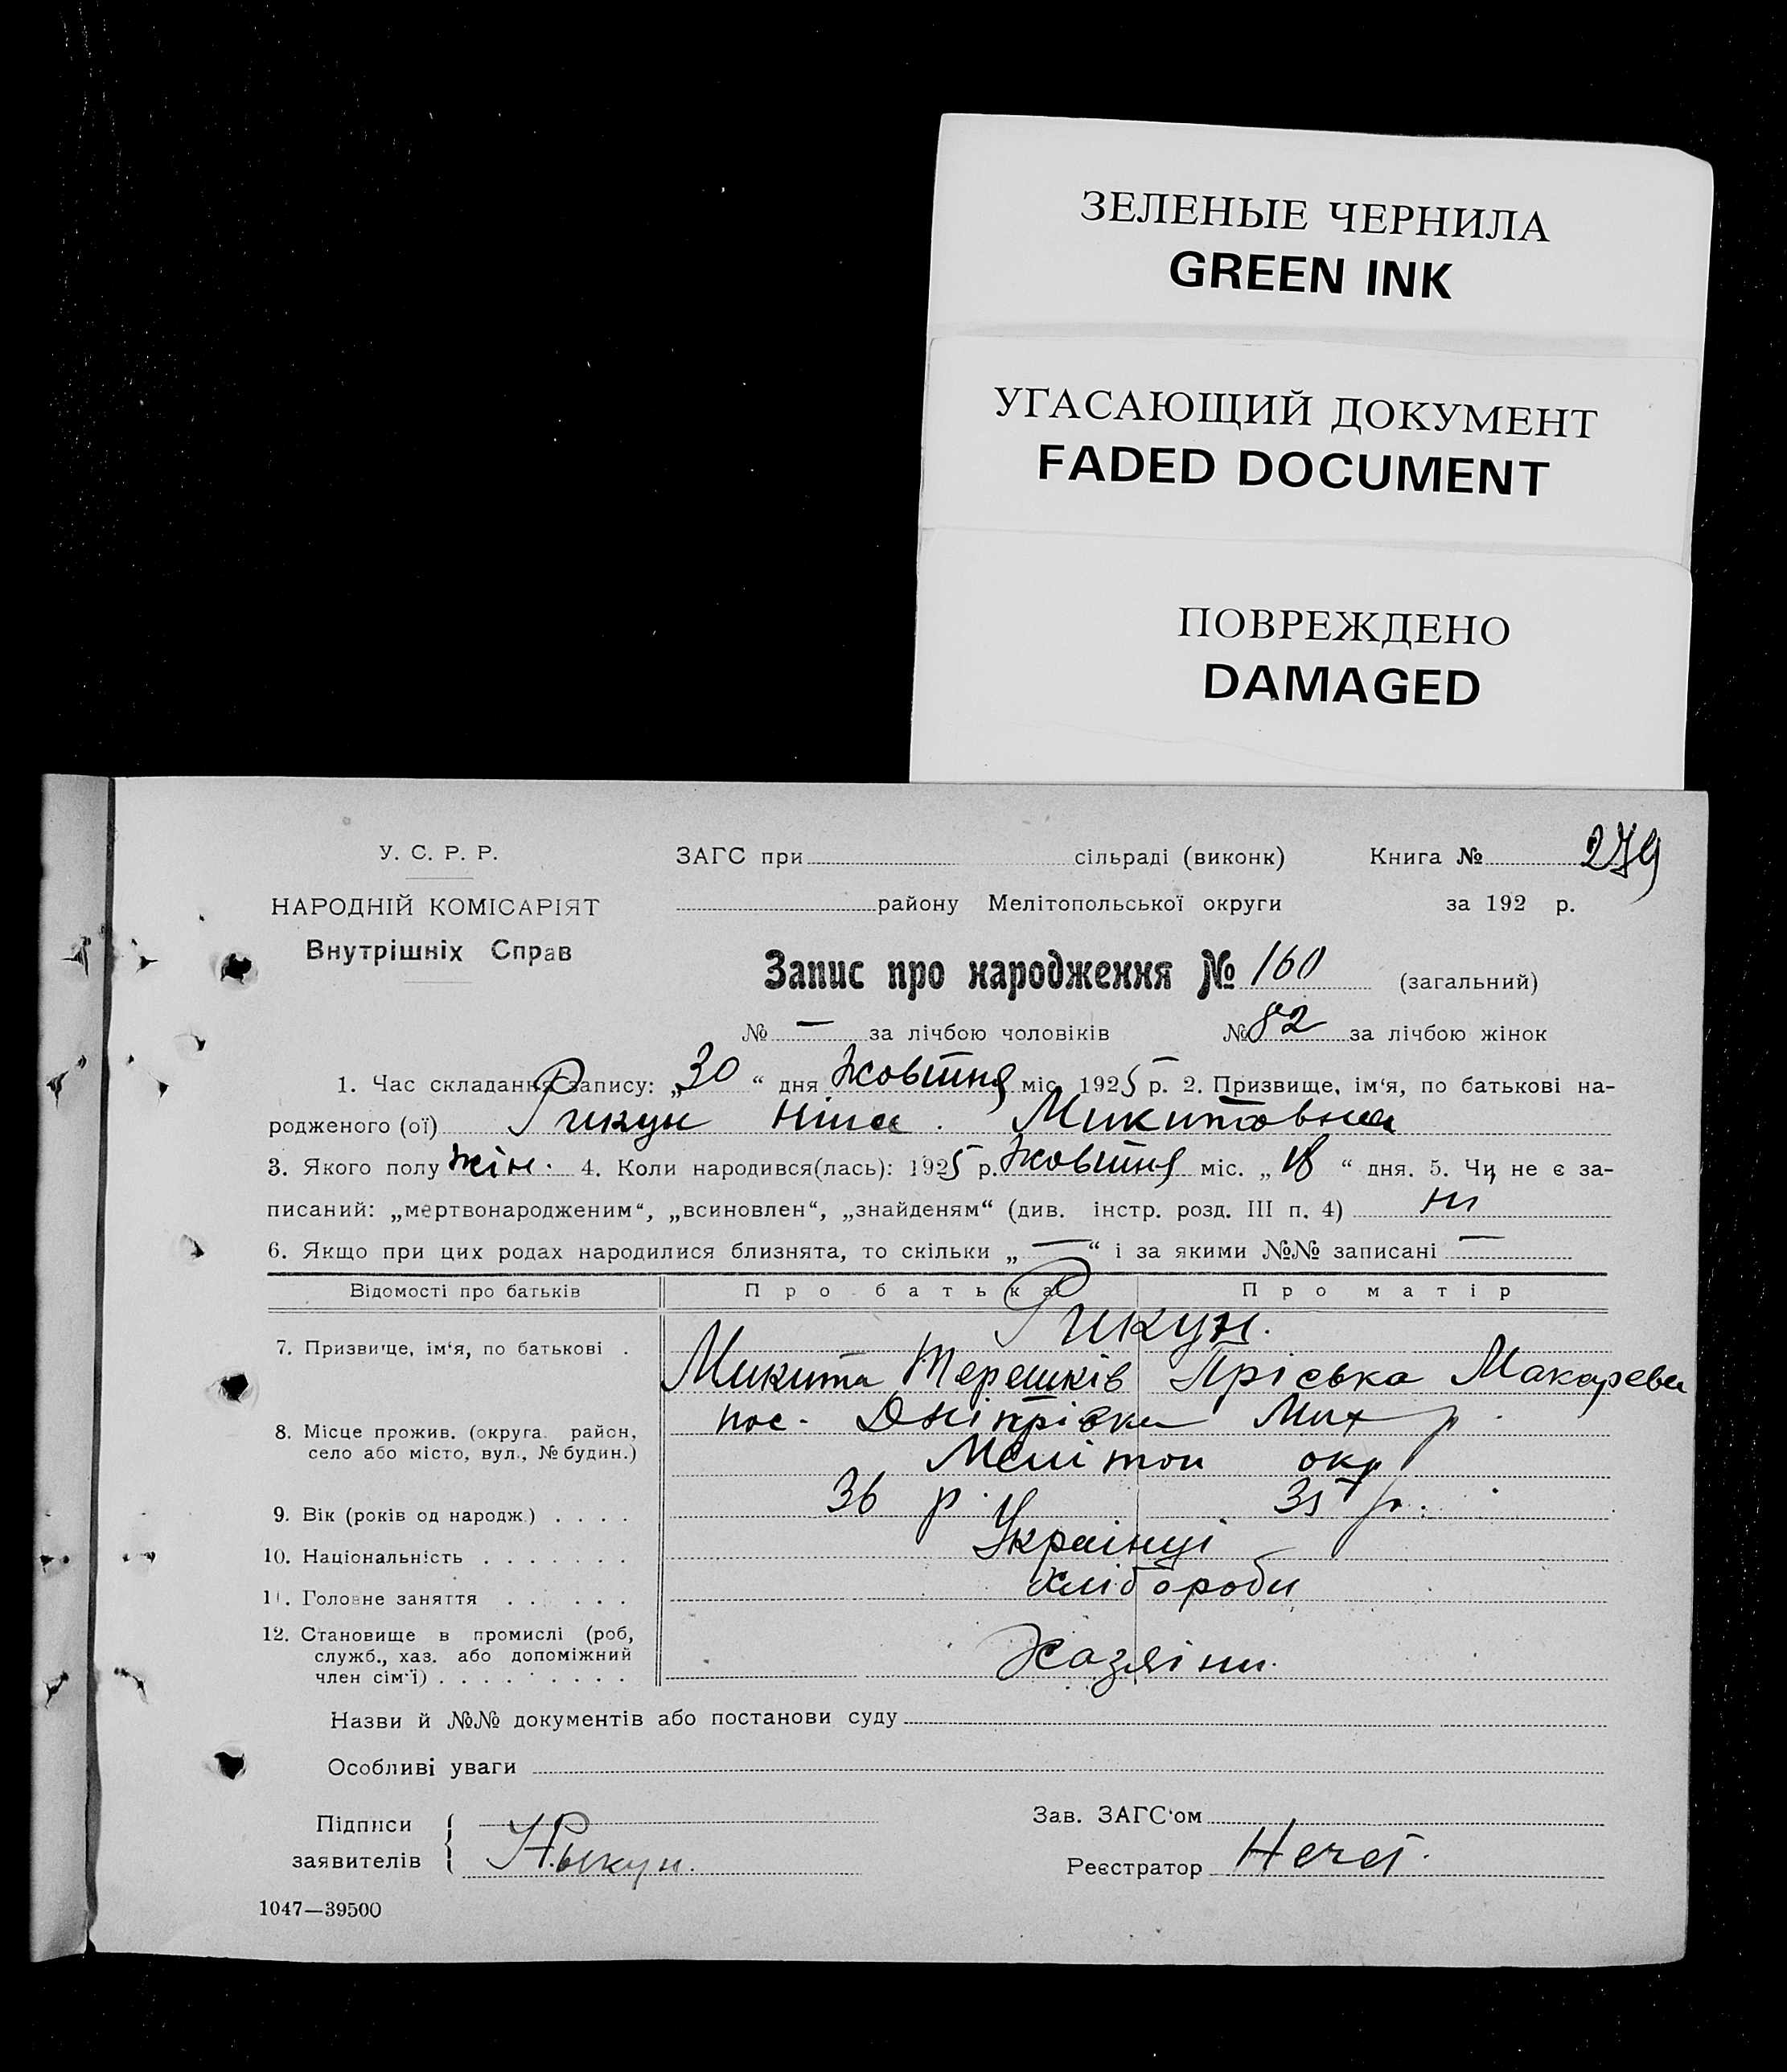 ЗЕЛЕНЫЕ ЧЕРНИЛА
GREEN INK
УГАСАЮЩИЙ ДОКУМЕНТ
FADED DOCUMENT
ПОВРЕЖДЕНО
DAMAGED
279
У. С. Р. Р.
НАРОДНІЙ КОМІСАРІЯТ
Внутрішніх Справ
ЗАГС при сільраді (виконк) Книга №
району Мелітопольської округи за 192 р.
Запис про народження № 160 (загальний)
№ — за лічбою чоловіків № 82 за лічбою жінок
1. Час складання запису: „30“ дня Жовтня міс. 1925 р. 2. Призвище, ім‘я, по батькові на-
родженого (ої) Рикун Ніна Микитовна
3. Якого полу жін. 4. Коли народився(лась): 1925 р. Жовтня міс. „18“ дня. 5. Чи не є за-
писаний: „мертвонародженим“, „всиновлен“, „знайденям“ (див. інстр. розд. III п. 4) ні
6. Якщо при цих родах народилися близнята, то скільки „—“ і за якими №№ записані —
Відомості про батьків Про батька Про матір
Рикун.
7. Призвище, ім‘я, по батькові .
Микита Терешків Пріська Макарева
8. Місце прожив. (округа район, пос. Дніпрівка Мих р.
село або місто, вул., № будин.) Мелітоп окр
9. Вік (років од народж.) . . . . 36 р. 35 р.
10. Національність . . . . . . . Украінці
11. Головне заняття . . . . . . Хлібороби
12. Становище в промислі (роб,
служб., хаз. або допоміжний Хазяіни.
член сім‘ї) . . . . . . . . .
Назви й №№ документів або постанови суду
Особливі уваги
Підписи Зав. ЗАГС‘ом
заявителів Н.Рыкун. Реєстратор
1047—39500